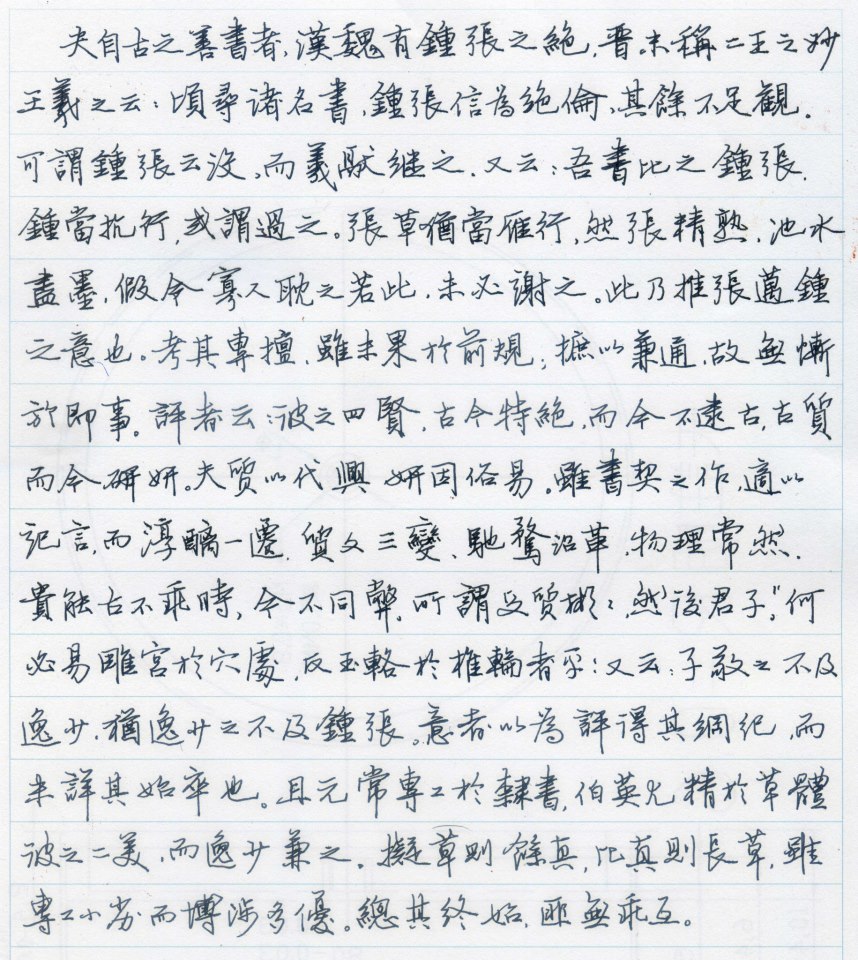 夫自古之善書者,漢魏有鍾張之絕,晉末稱二王之妙
王羲之云:頃尋諸名書,鍾張信為絕倫,其餘不足觀.
可謂鍾張云沒,而羲獻继之.又云:吾書比之鍾張.
鍾當抗行,或謂過之。張草猶當雁行,然張精熟.池水
盡墨,假令寡人耽之若此.未必謝之。此乃推張邁鍾
之意也。考其專擅.雖未果於前規;摭以兼通.故無慚
於即事。評者云:彼之四賢.古今特絕,而今不逮古,古質
而今研妍。夫質以代興 妍因俗易。雖書契之作,適以
記言,而淳醨一遷.質文三變.馳騖沿革.物理常然.
貴能古不乖時,今不同弊.所謂文質彬〻,然後君子”,何
必易雕宮於穴處,反玉輅於椎輪者乎!又云:子敬之不及
逸少,猶逸少之不及鍾張。意者以為評得其綱紀,而
未詳其始卒也。且元常專工於隸書,伯英尤精於草體
彼之二美,而逸少兼之。擬草則餘真,比真則長草,雖
專工小劣,而博涉多優。總其終始,匪無乖互。